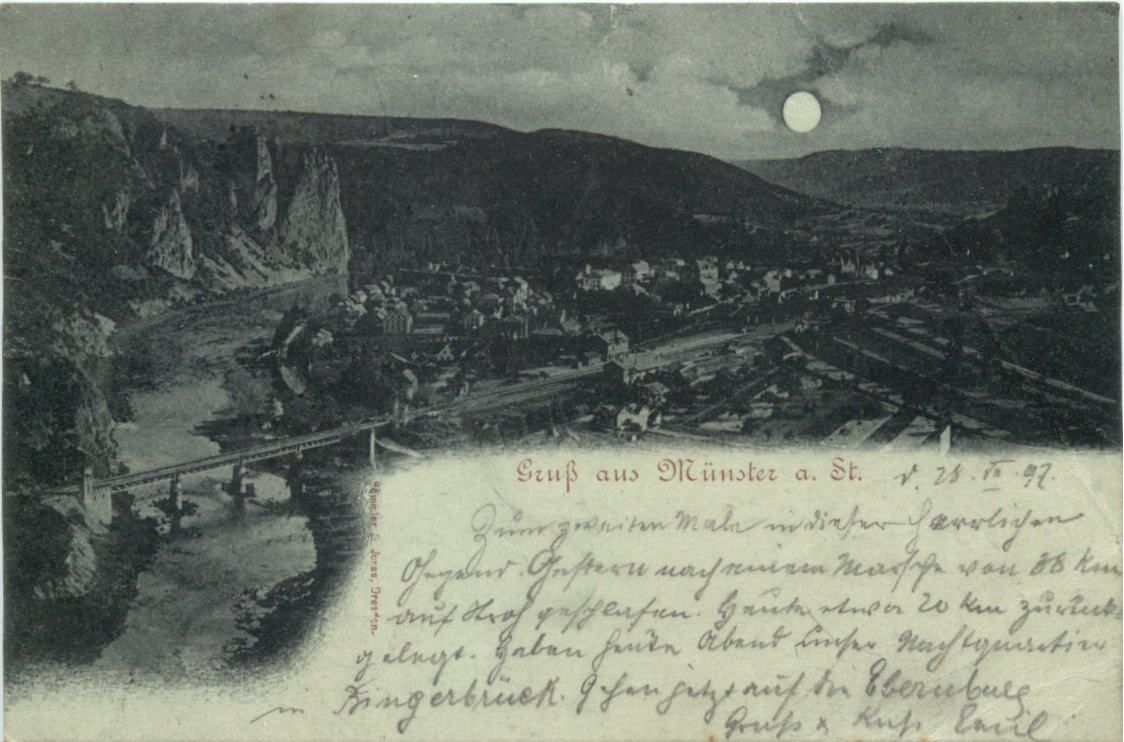 Gruß aus Münster a. St. d. 28. VII. 97.
Zum zweiten Male in dieser herrlichen
Gegend. Gestern nach einem Marsche von 38 km
auf Stroh geschlafen. Heute etwa 20 km zurück-
gelegt. Haben heute Abend unser Nachtquartier
in Bingerbrück. Gehen jetzt auf die Ebernburg
Gruß & Kuß Emil
Römmler & Jonas, Dresden.